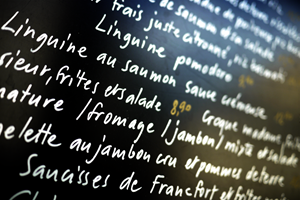 frais juste citronné, riz
Linguine pomodoro
Linguine au saumon sauce crémeuse
sieur, frites et salade 8,90 Croque madame,
nature / fromage / jambon / mixte et salade
lette au jambon cru et pommes de terre
Saucisses de Francfort et frites